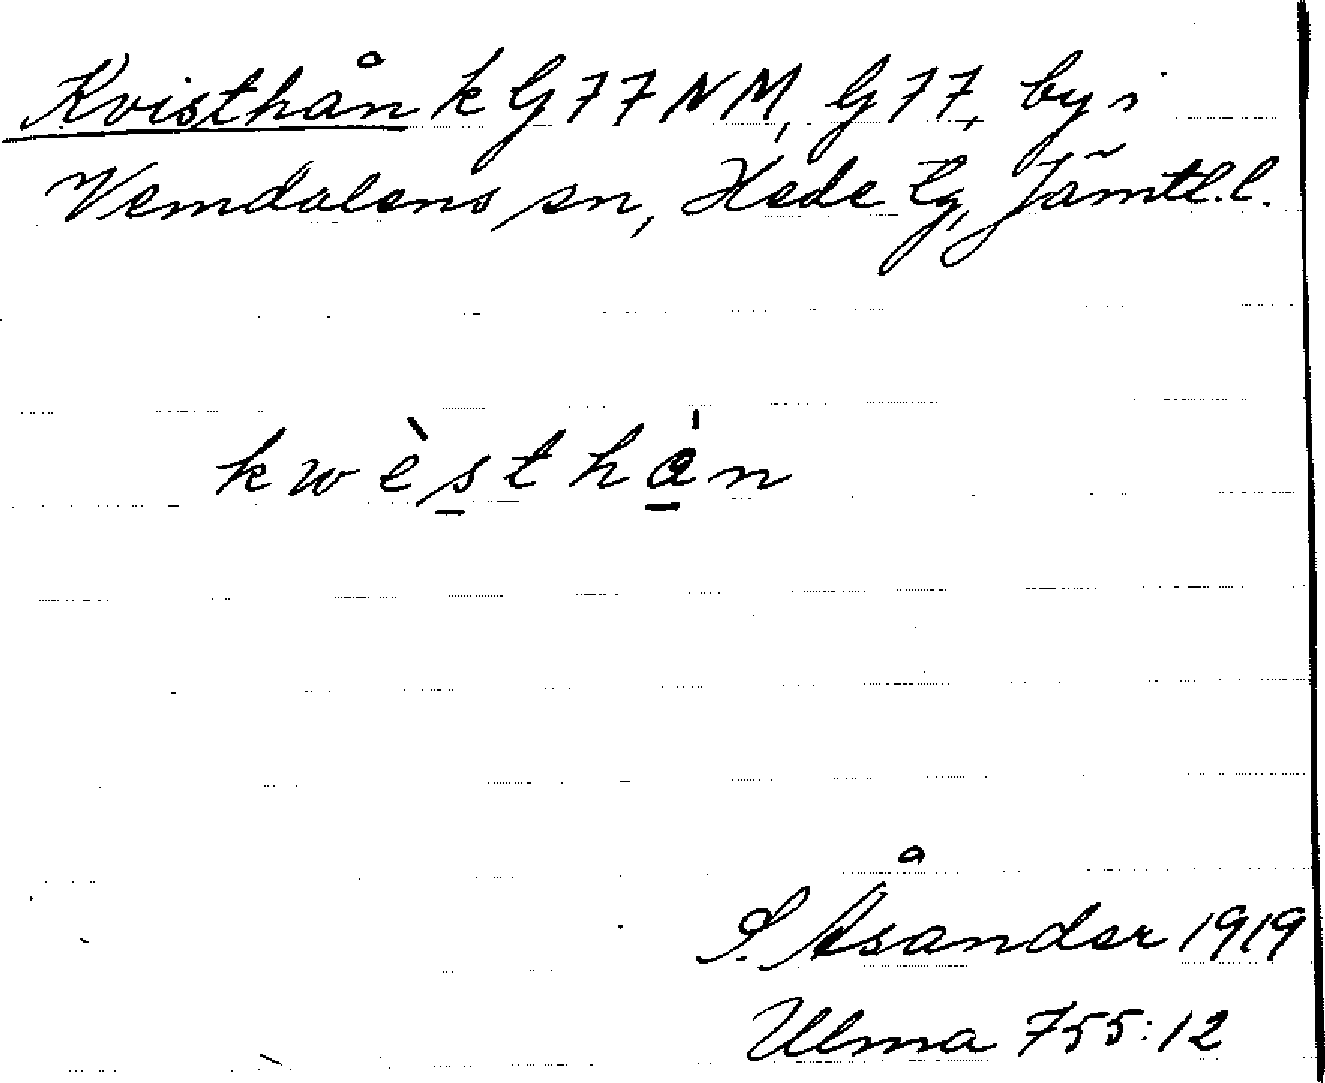 Kvisthån k G77 NM, G77, by i
Vemdalens sn, Hede tg, Jämtl. l.
kwèsthàn
S. Åsander 1919
Ulma 755:12